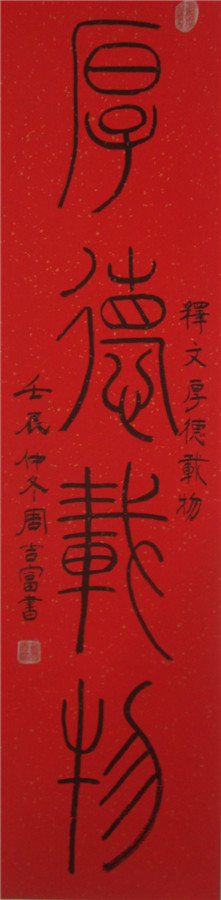 厚德載物
釋文厚德載物
壬辰仲冬周吉富書